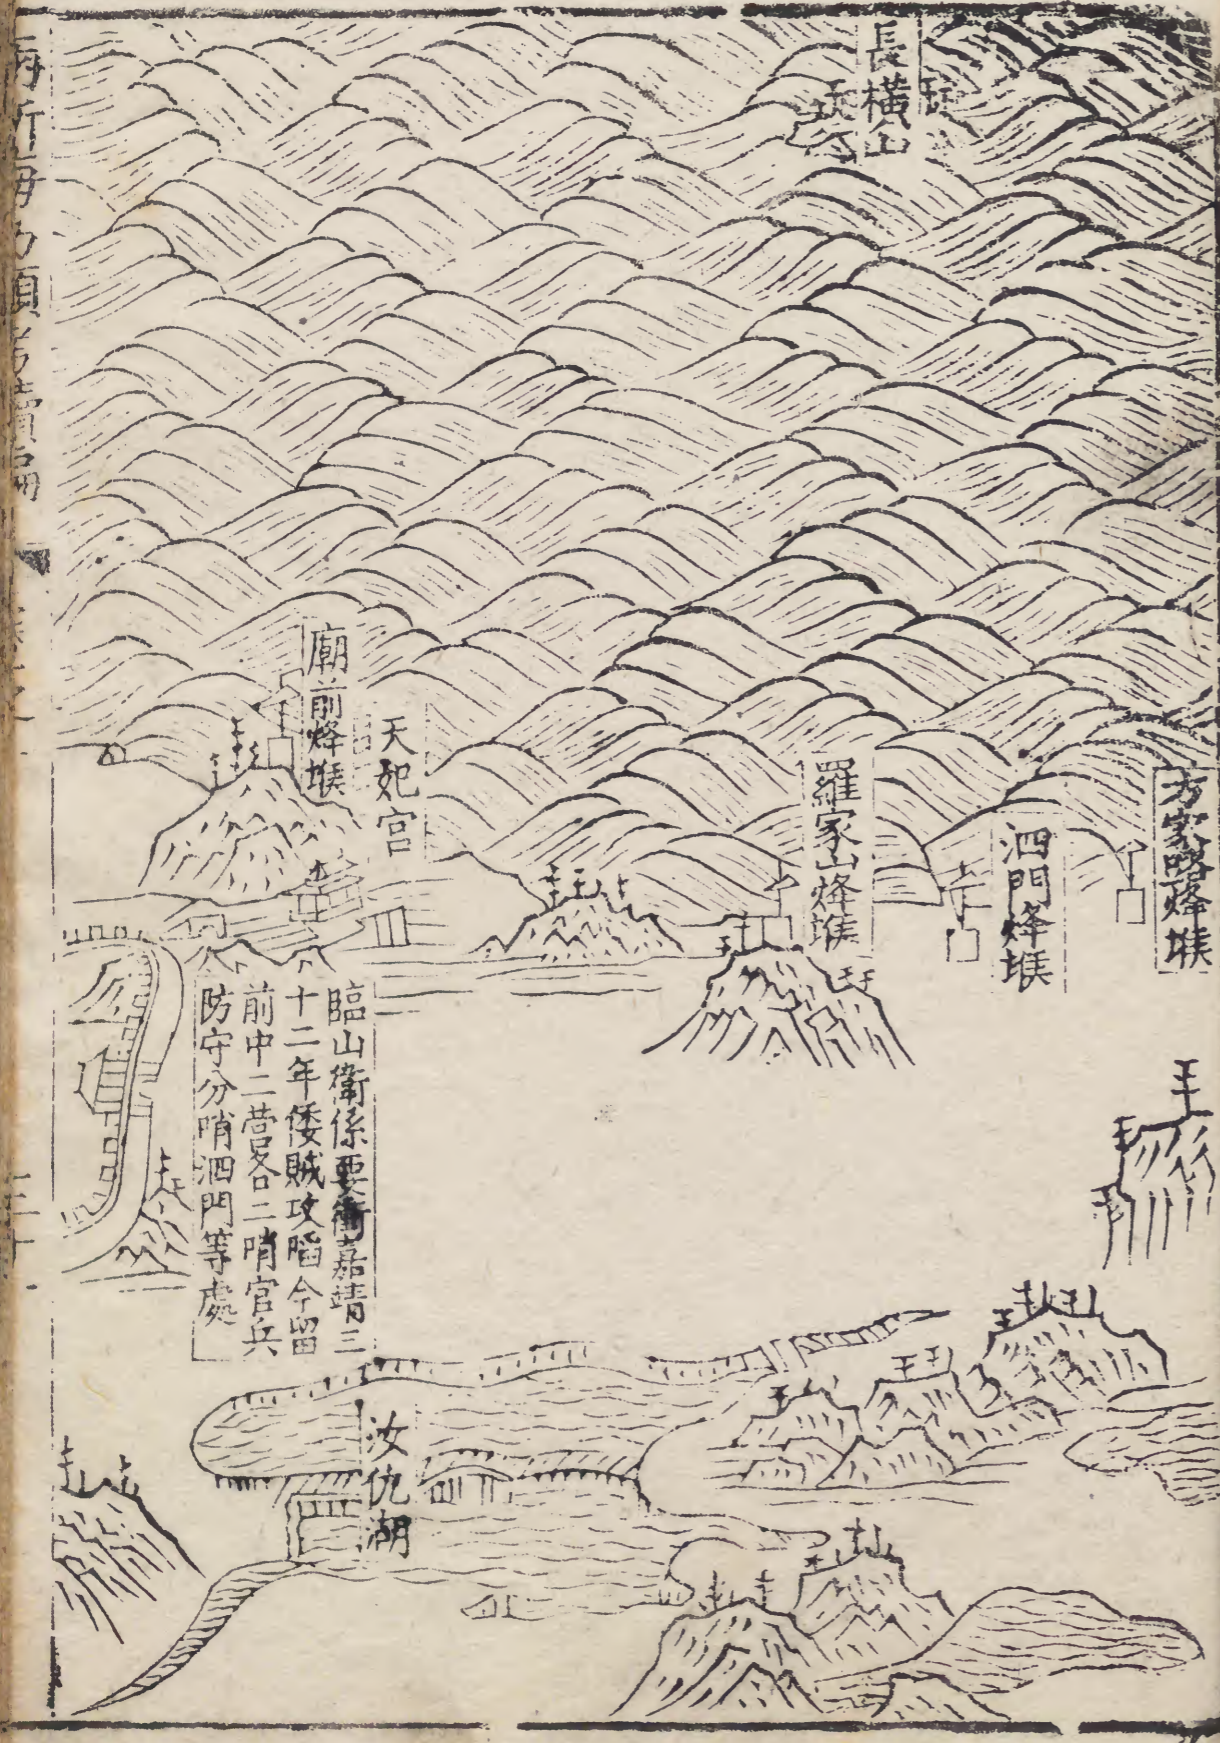 長橫山
方家路烽堠
泗門烽堠
羅家山烽堠
天妃宮
廟前烽堠
臨山衛係要衝嘉靖三
十二年倭賊攻陷今留
前中二營各二哨官兵
防守分哨泗門等處
汝仇湖